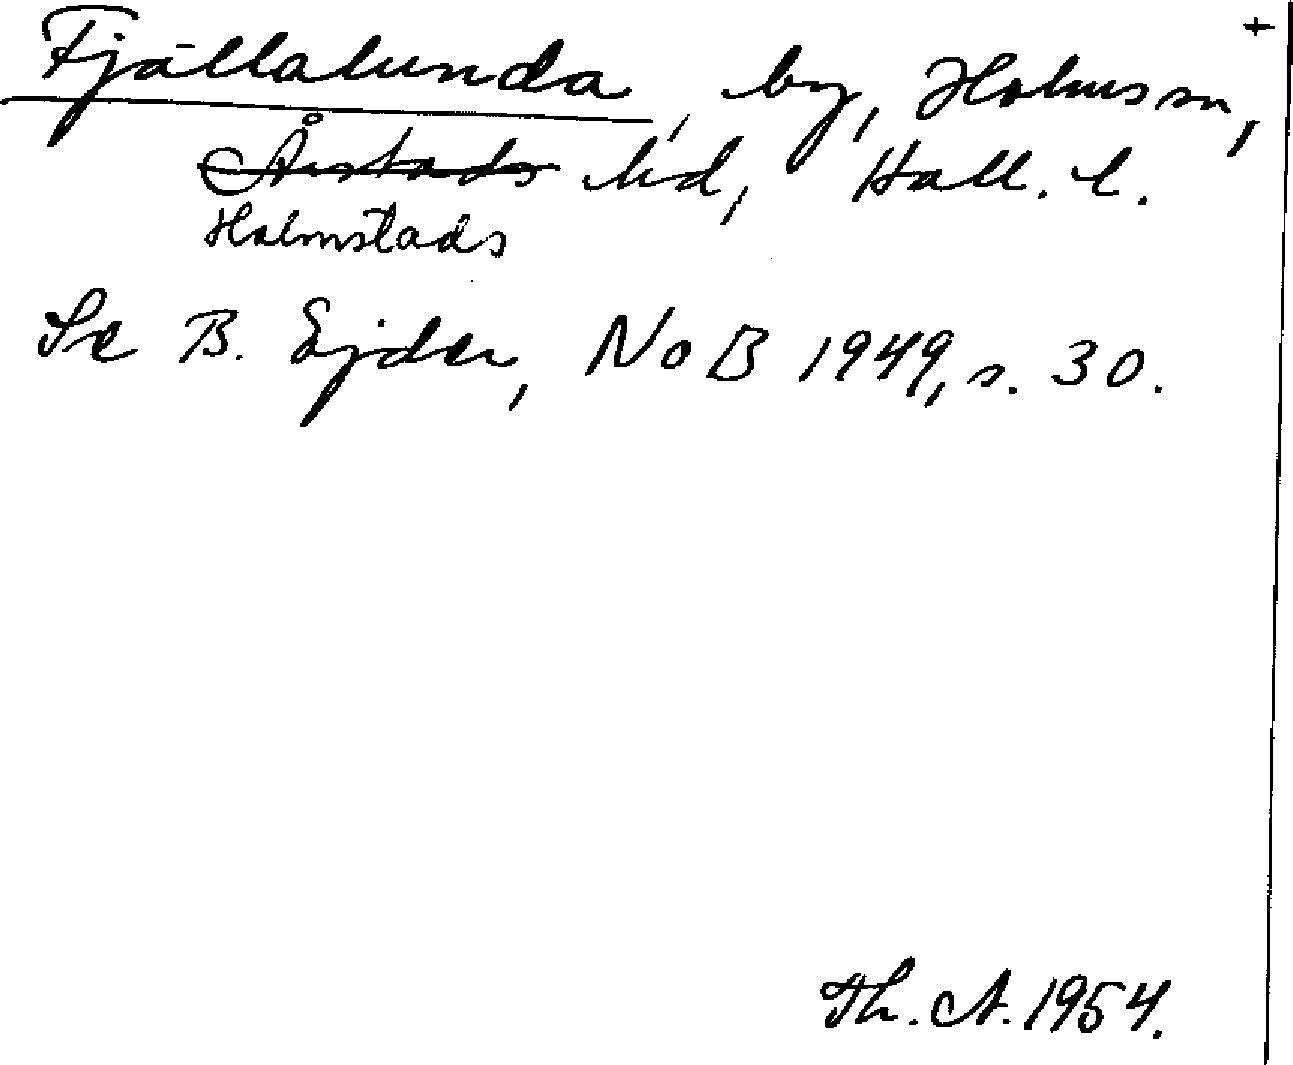 Fjällalunda, by, Holms sn, +
Årstads hd, Hall. l.
Halmstads
Se B. Ejder, NoB 1949, s. 30.
Th. A. 1954.